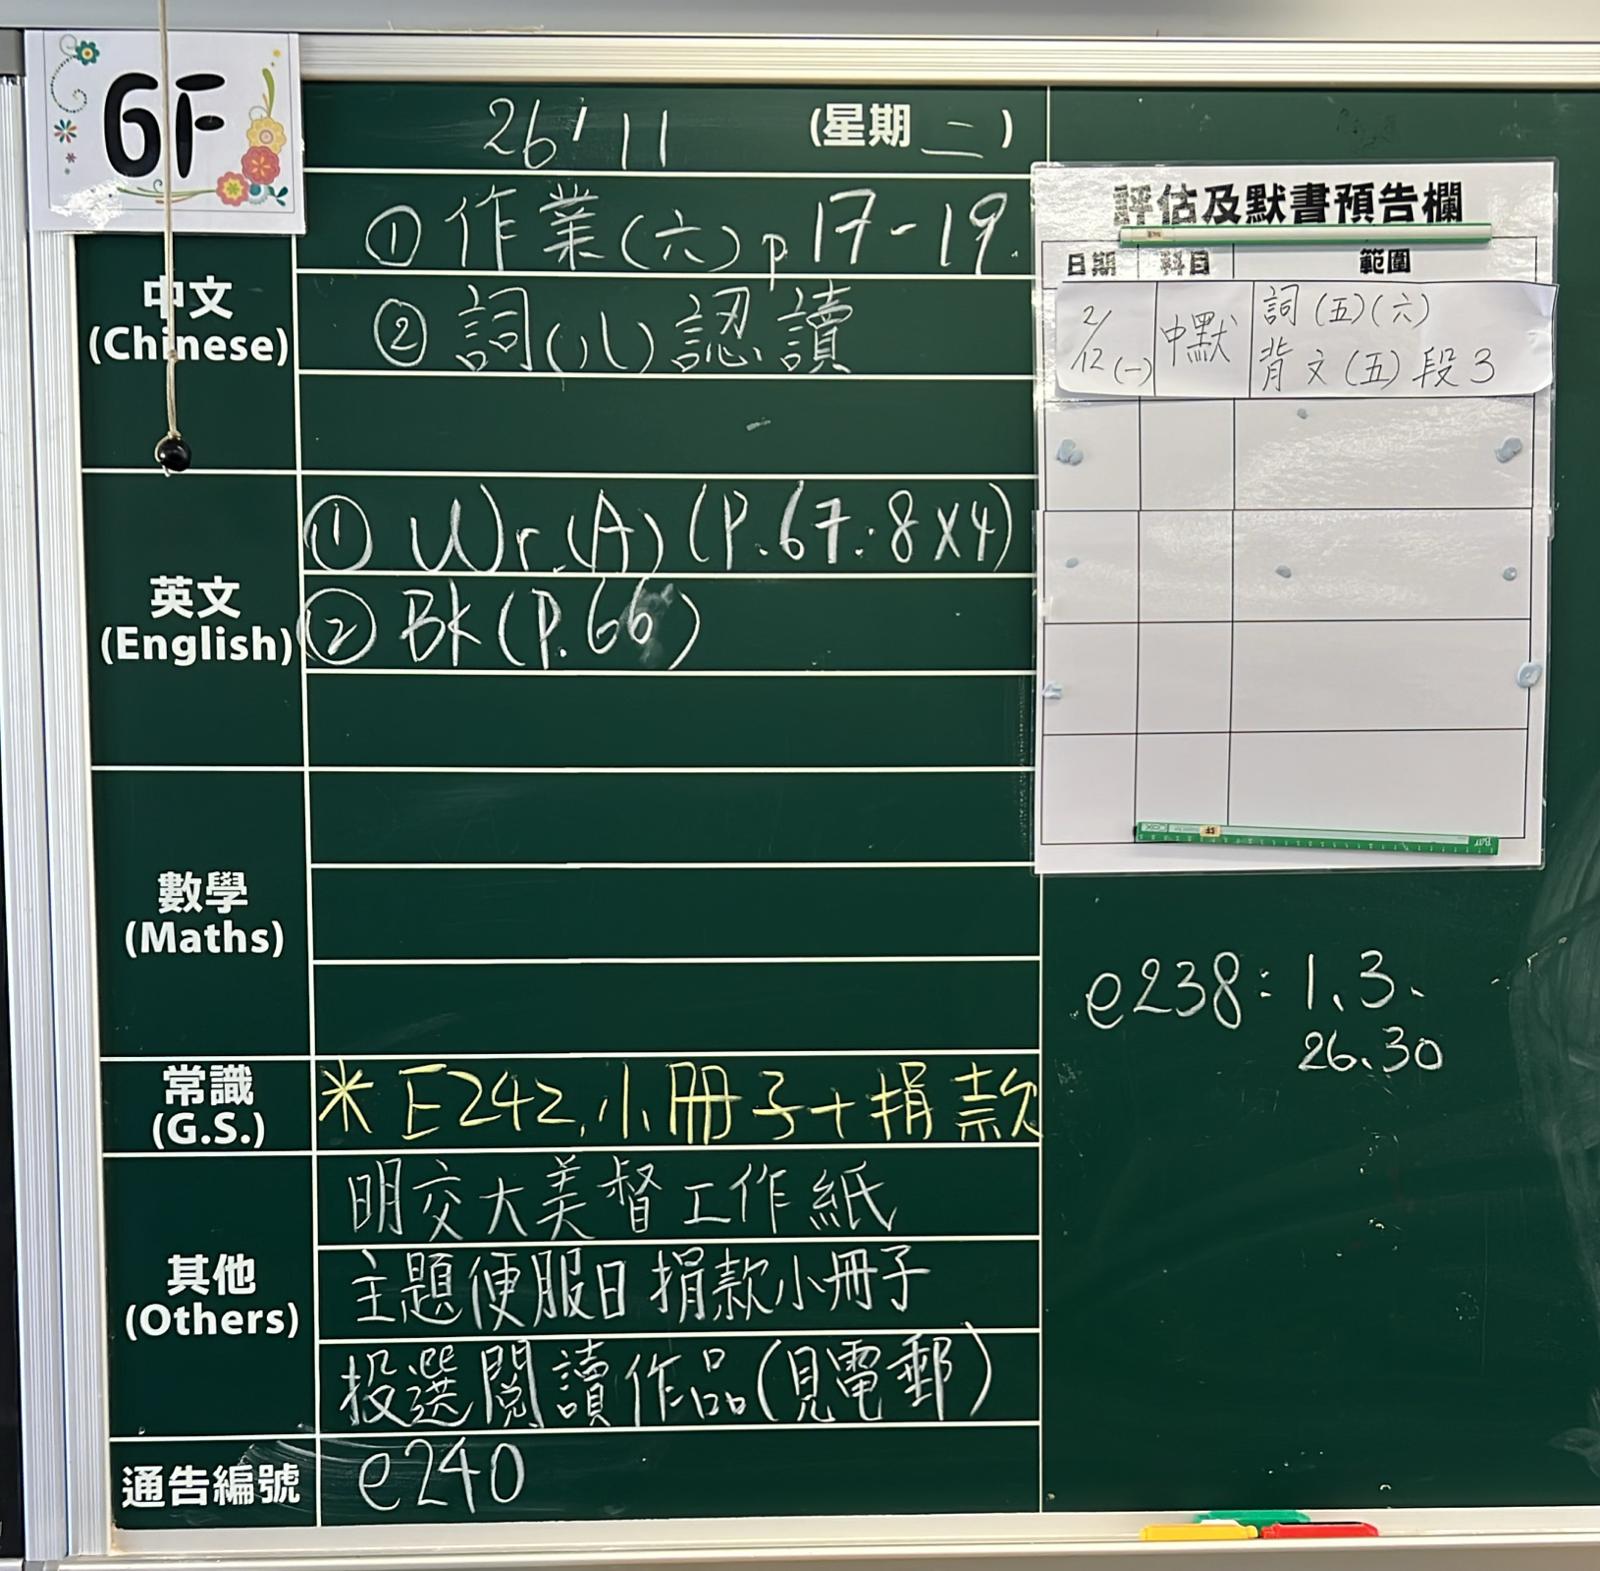 6F
26/11 (星期二)
中文
(Chinese)
① 作業(六)p17-19.
② 詞(八)認讀
英文
(English)
① Wr.(A) (P.67:8X4)
② Bk (P.66)
數學
(Maths)
常識
(G.S.)
* E242,小冊子+捐款
其他
(Others)
明交大美督工作紙
主題便服日捐款小冊子
投選閱讀作品(見電郵)
通告編號
e240
評估及默書預告欄
日期 科目 範圍
2/12(一) 中默 詞(五)(六)
背文(五)段3
e238: 1、3、
26、30